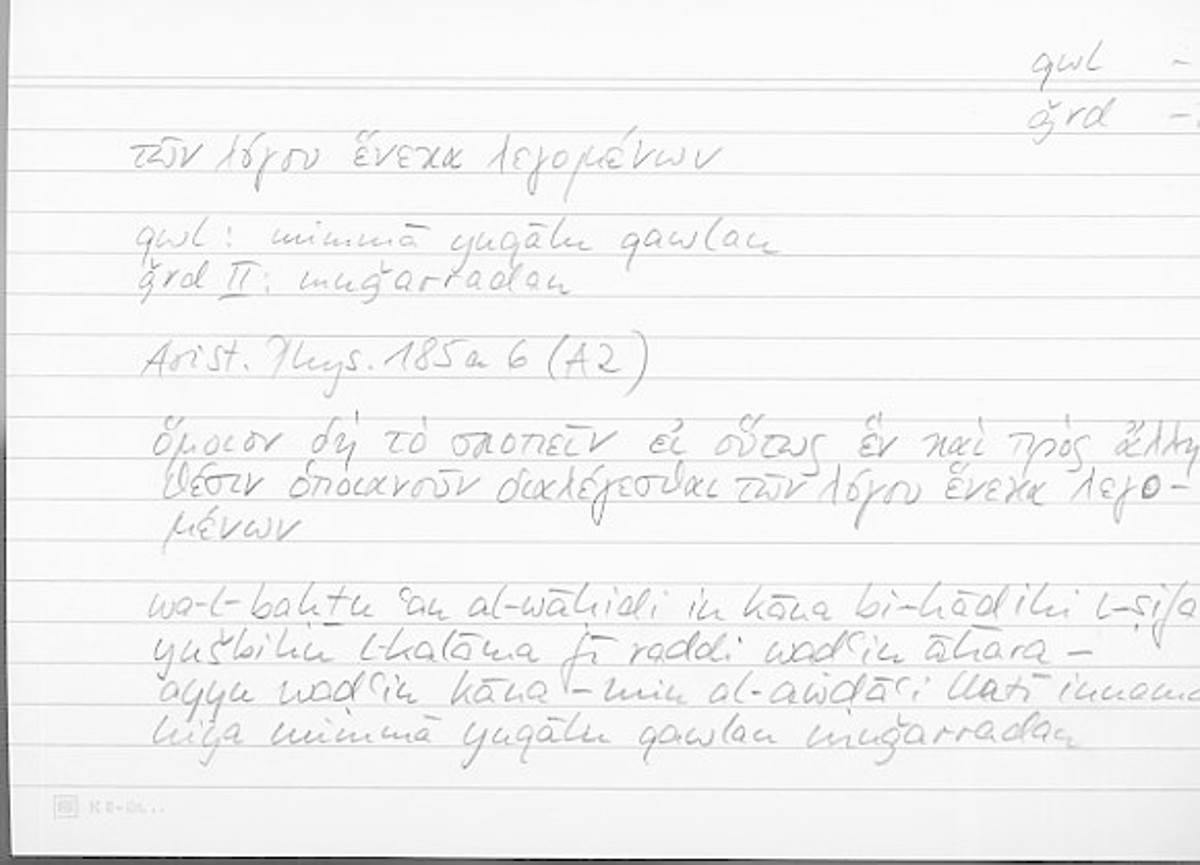 qwl –
ǧrd –
τῶν λόγου ἕνεκα λεγομένων
qwl : mimmā yuqālu qawlan
ǧrd II : muǧarradan
Arist. Phys. 185 a 6 (A 2)
ὅμοιον δὴ τὸ σκοπεῖν εἰ οὕτως ἓν καὶ πρὸς ἄλλη
θέσιν ὁποιανοῦν διαλέγεσθαι τῶν λόγου ἕνεκα λεγο-
μένων
wa-l-baḥṯu ʿan al-wāḥidi in kāna bi-hāḏihi l-ṣifa
yušbihu l-kalāma fī raddi waḍʿin āḫara –
ayyu waḍʿin kāna – min al-awḍāʿi llatī innamā
hiya mimmā yuqālu qawlan muǧarradan